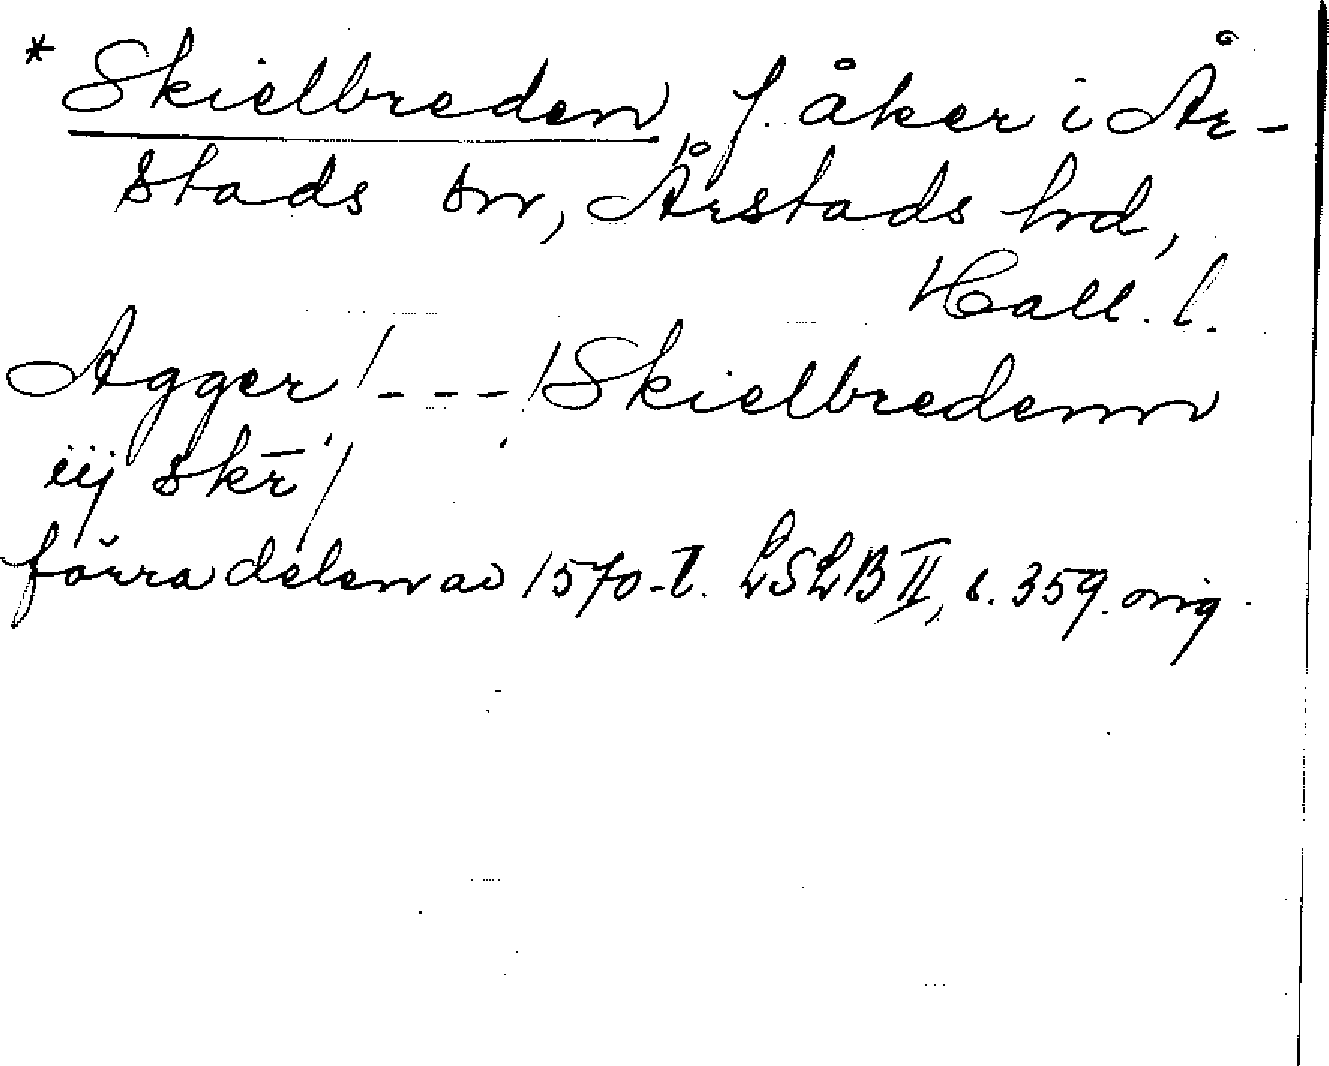 * Skielbreden, f. åker i År-
stads sn, Årstads hd,
Hall. l.
Agger /---/ Skielbredenn
iij skr̄ /
förra delen av 1570-t. LSLB II, s. 359. orig.